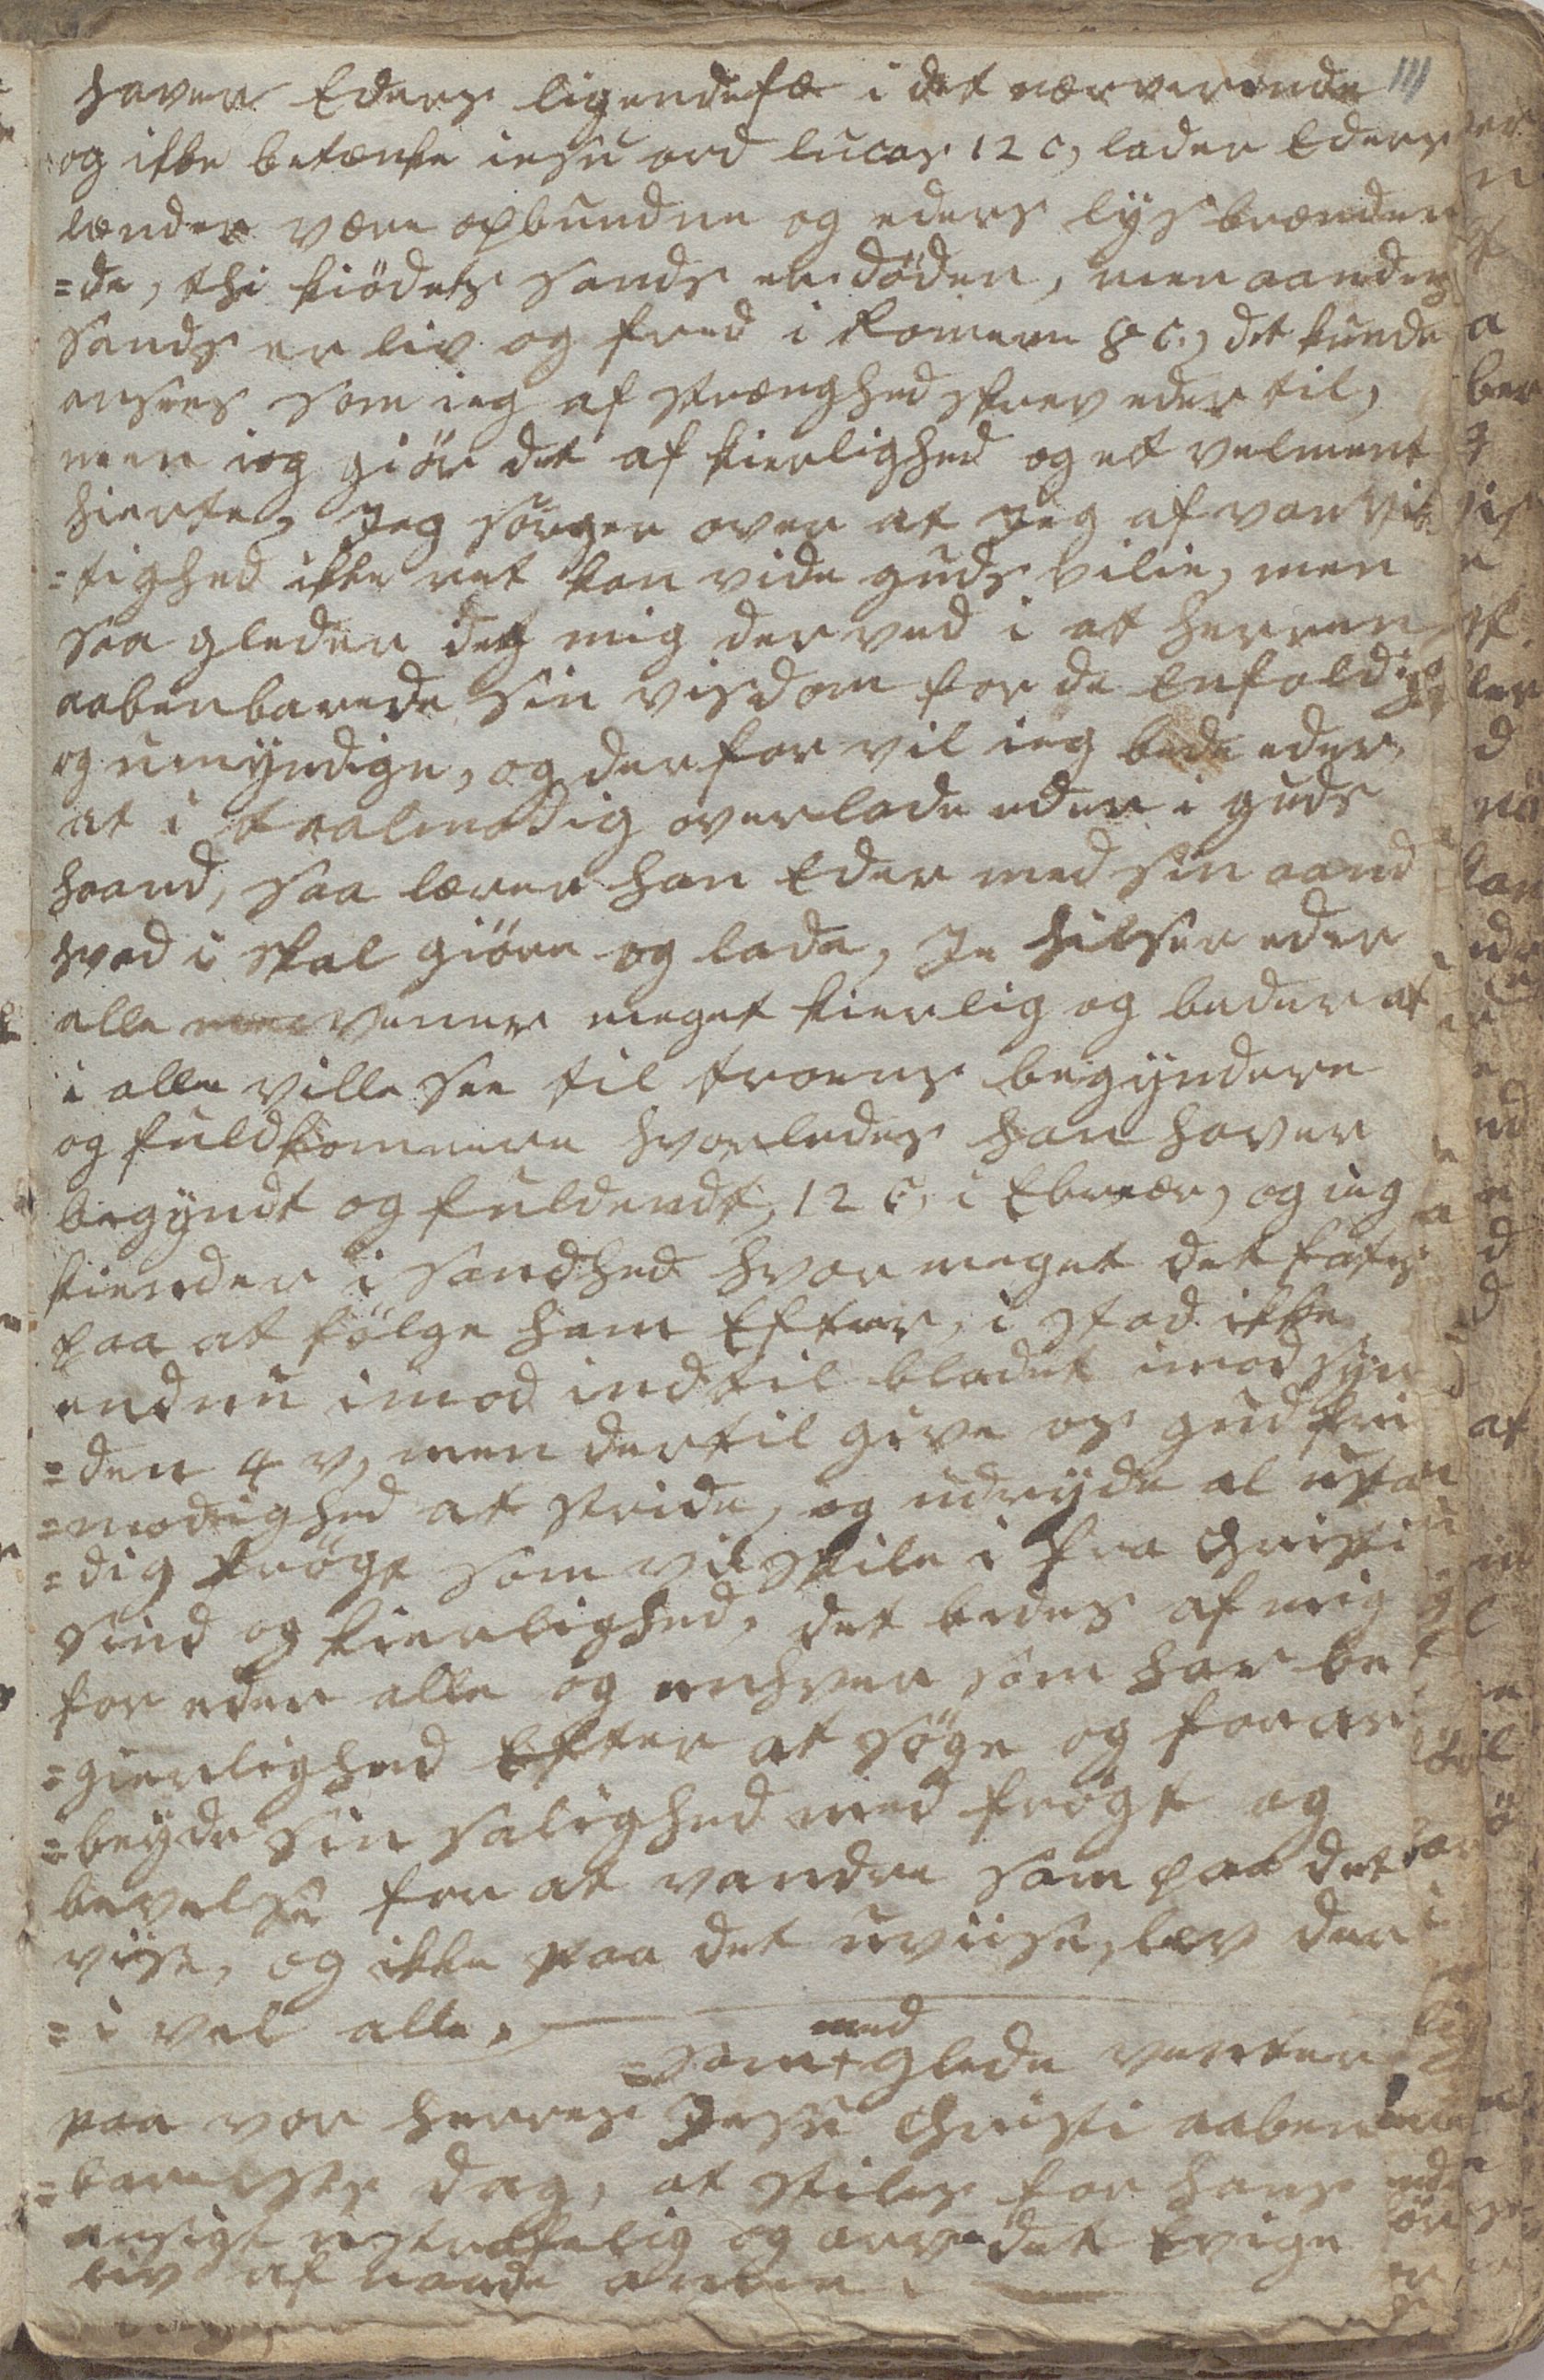 111
haver Eders ligendefæ i det nærverende
og ikke betænke iesu ord lucas 12 c, lader Eders
lænder være opbundne og eders lys brænden
=de, thi kiödets sands er döden, men aandens
sands er liv og fred i Romern 8 c., det kunde
ansees som ieg af strænghed skrev eder til,
men ieg giör det af kierlighed og et velment
hierte, Jeg sörger over at Jeg af vanvit
=tighed ikke ret kan vide guds vilie, men
saa gleder det mig der ved i at herren
aabenbarede sin visdom for de Enfoldige
og umyndige, og derfor vil ieg bede eder,
at i taalmodig overlade eder i guds
haand, saa lærer han Eder med sin aand
hvad i skal giöre og lade, Je hilser eder
alle venner meget kierlig og beder at
i alle ville see til troens begyndere
og fuldkommere hvorledes han haver
begyndt og fuldendt, 12 c, i Ebreær, og ieg
kiender i sandhed hvor meget det fates
paa at fölge ham Efter, i stod ikke
endnu imod indtil blodet imod syn
=den 4 v, men dertil give os gud fri
=modighed at stride, og udryde al ustan
=dig frögt som vil skile i fra Christi
sind og kierlighed, det bedes af mig
for eder alle og enhver som har be
=gierlighed Efter at söge og forar
=beyde sin salighed med frögt og
bevelse for at vandre som paa det
viise, og ikke paa det uviise, lev der
=i vel alle,
med
=som + glede venter
paa vor herres Jesu Christi aaben
=barelses dag, at stiles for hans
ansigt ustrafelig og arve det Evige
liv af naade amen